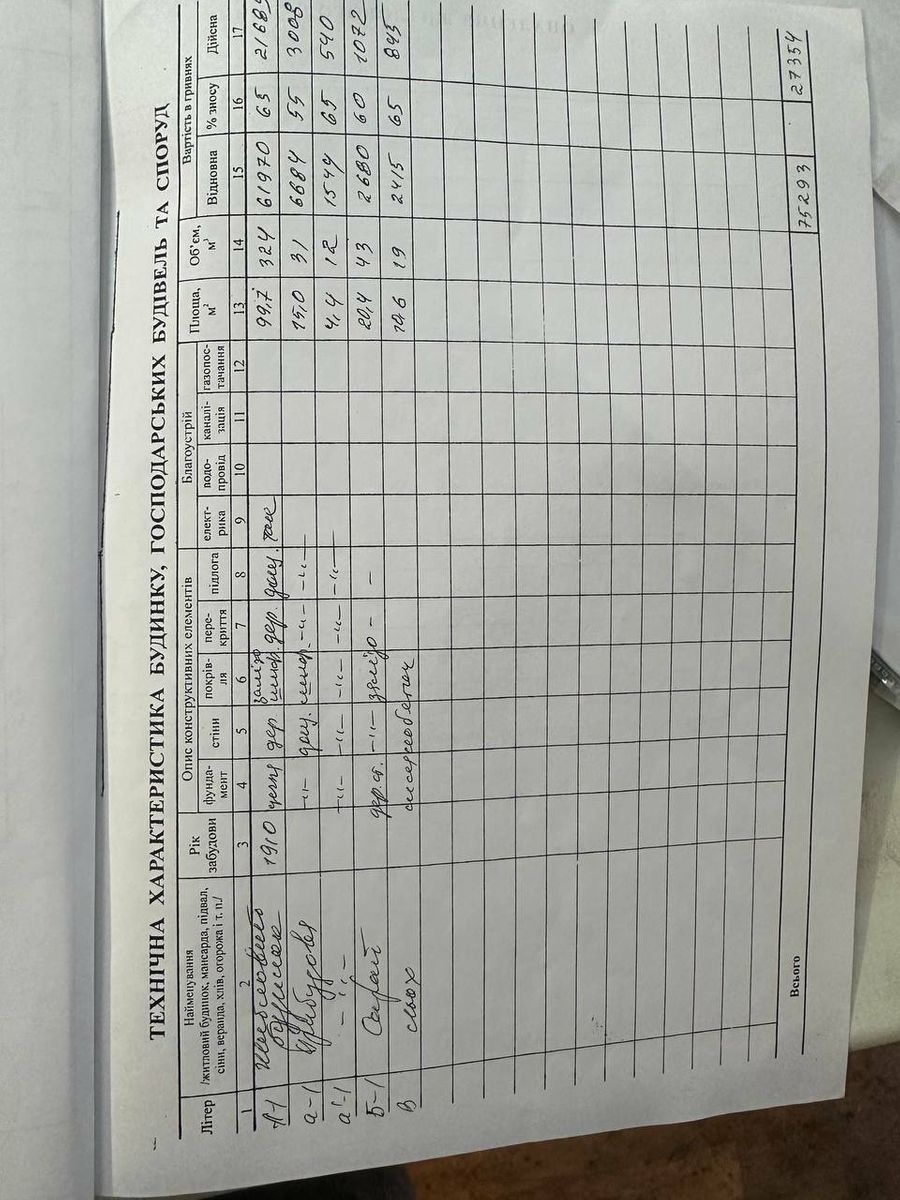 ТЕХНІЧНА ХАРАКТЕРИСТИКА БУДИНКУ, ГОСПОДАРСЬКИХ БУДІВЕЛЬ ТА СПОРУД
Літер Найменування /житловий будинок, мансарда, підвал, сіни, веранда, хлів, огорожа і т. п./ Рік забудови Опис конструктивних елементів Благоустрій Площа, м² Об'єм, м³ Вартість в гривнях
фунда-мент стіни покрів-ля пере-криття підлога елект-рика водо-провід каналі-зація газопос-тачання Відновна % зносу Дійсна
1 2 3 4 5 6 7 8 9 10 11 12 13 14 15 16 17
А-1 житловий будинок 1910 цегля дер залізо шифер. дер. дощ. так 99,7 324 61970 65 21689
а-1 Прибудова -"- дощ. шифер. -"- -"- 15,0 31 6684 55 3008
а'-1 -"- -"- -"- -"- -"- -"- 4,4 12 1544 65 540
Б-1 Сарай дер. ст. -"- залізо - - 20,4 43 2680 60 1072
В льох 10,6 19 2415 65 845
Всього 75293 27354